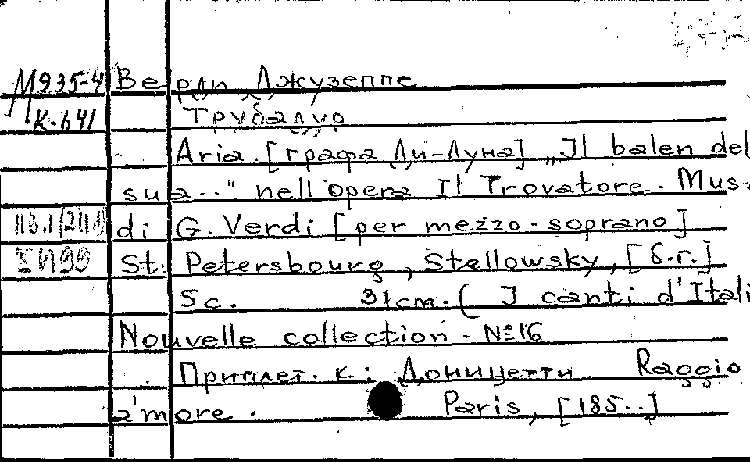 М935-4 Верди Джузеппе
К-641 Трубадур
Aria. [графа Ди-Луна] „Il balen del
sua..." nell'opera Il Trovatore. Mus.
di G. Verdi [per mezzo-soprano]
St. Petersbourg, Stellowsky, [б.г.]
5c. 31cm. ( I canti d'Itali
Nouvelle collection. №16
Приплет. к: Доницетти Raggio
a'more. Paris, [185..]